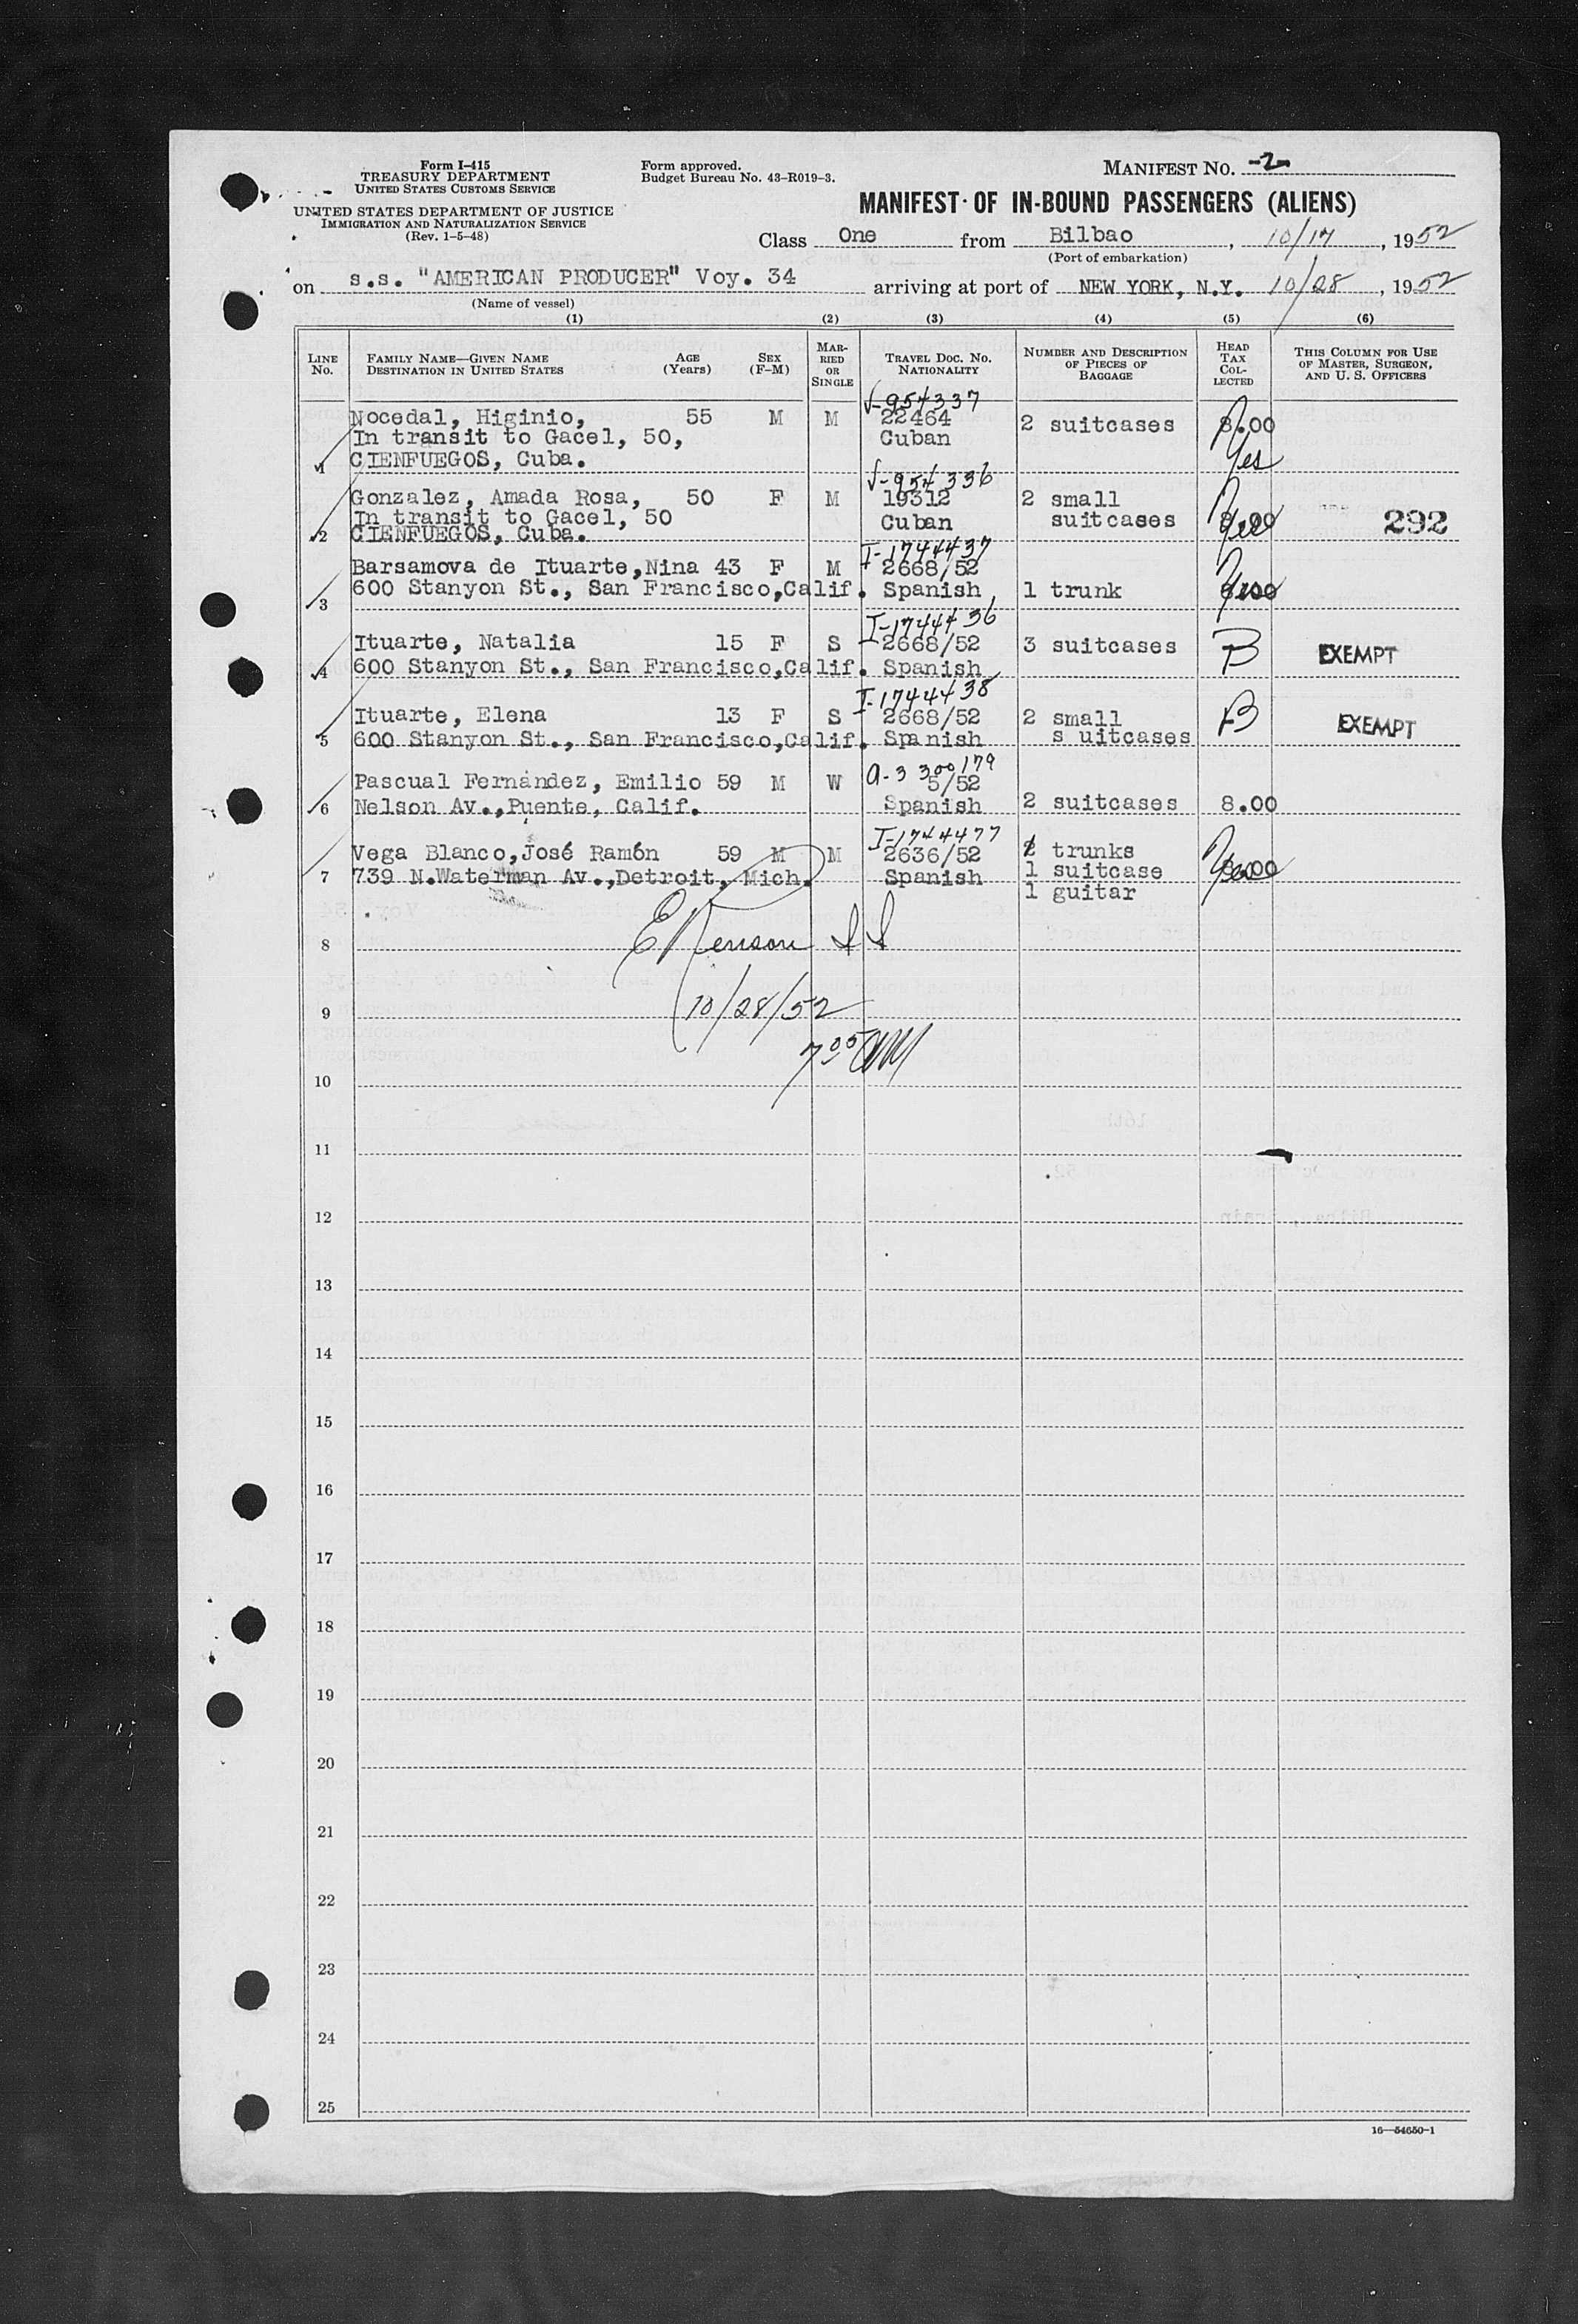 Form I-415
TREASURY DEPARTMENT
UNITED STATES CUSTOMS SERVICE
UNITED STATES DEPARTMENT OF JUSTICE
IMMIGRATION AND NATURALIZATION SERVICE
(Rev. 1-5-48)
Form approved.
Budget Bureau No. 43-R019-3.
MANIFEST NO. -2-
MANIFEST OF IN-BOUND PASSENGERS (ALIENS)
Class One from Bilbao, 10/17, 1952
(Port of embarkation)
on s.s. "AMERICAN PRODUCER" Voy. 34 arriving at port of NEW YORK, N.Y. 10/28, 1952
(Name of vessel)
(1) (2) (3) (4) (5) (6)
LINE NO.
FAMILY NAME—GIVEN NAME
DESTINATION IN UNITED STATES
AGE (Years)
SEX (F-M)
MARRIED OR SINGLE
TRAVEL DOC. NO.
NATIONALITY
NUMBER AND DESCRIPTION OF PIECES OF BAGGAGE
HEAD TAX COLLECTED
THIS COLUMN FOR USE OF MASTER, SURGEON, AND U. S. OFFICERS
V-954337
Nocedal, Higinio, 55 M M 22464 2 suitcases 8.00
In transit to Gacel, 50, Cuban
1 CIENFUEGOS, Cuba. Yes
V-954336
Gonzalez, Amada Rosa, 50 F M 19312 2 small
In transit to Gacel, 50 Cuban suitcases 8.00 292
2 CIENFUEGOS, Cuba.
I-1744437
Barsamova de Ituarte,Nina 43 F M 2668/52
3 600 Stanyon St., San Francisco,Calif. Spanish 1 trunk
I-1744436
Ituarte, Natalia 15 F S 2668/52 3 suitcases EXEMPT
4 600 Stanyon St., San Francisco,Calif. Spanish
I-1744438
Ituarte, Elena 13 F S 2668/52 2 small EXEMPT
5 600 Stanyon St., San Francisco,Calif. Spanish s uitcases
a-3 300 179
Pascual Fernández, Emilio 59 M W 5/52
6 Nelson Av.,Puente, Calif. Spanish 2 suitcases 8.00
I-1744477
Vega Blanco,José Ramón 59 M M 2636/52 trunks
7 739 N.Waterman Av.,Detroit, Mich. Spanish 1 suitcase 8.00
1 guitar
8
10/28/52
9
7 05 AM
10
11
12
13
14
15
16
17
18
19
20
21
22
23
24
25
16—54650-1